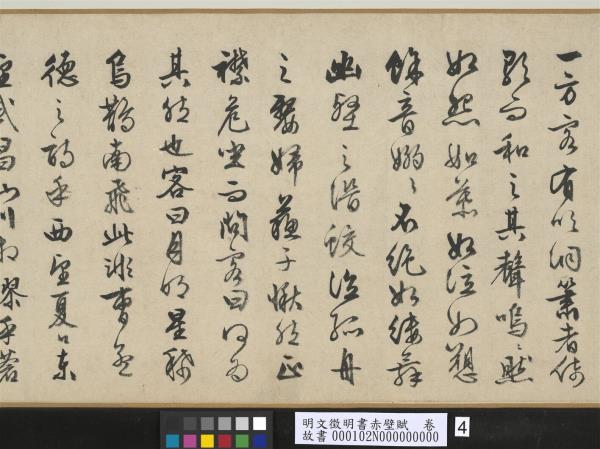 一方客有吹洞簫者倚
歌而和之其聲嗚〻然
如怨如慕如泣如愬
餘音嫋〻不絕如縷舞
幽壑之潛蛟泣孤舟
之嫠婦蘇子愀然正
襟危坐而問客曰何為
其然也客曰月明星稀
烏鵲南飛此非曹孟
德之詩乎西望夏口東
望武昌山川相繆乎蒼
明文徵明書赤壁賦 卷
故書 000102N000000000
4